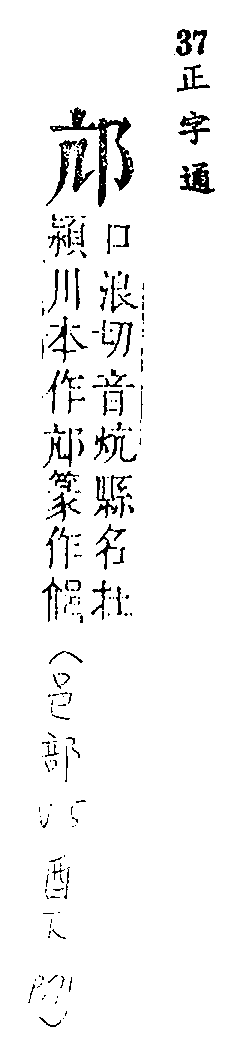 37 正字通
邟
口浪切音炕縣名在
潁川本作邟篆作
(邑部 酉下